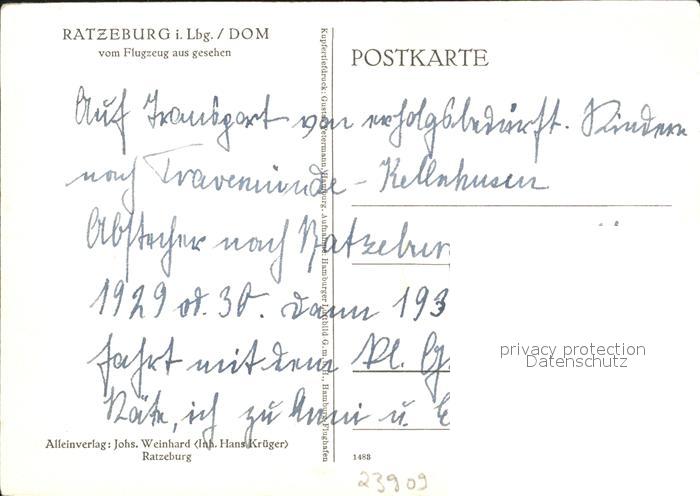 RATZEBURG i. Lbg. / DOM
vom Flugzeug aus gesehen
POSTKARTE
Kupfertiefdruck: Gustav Petermann, Hamburg. Aufnahme: Hamburger Luftbild G.m.b.H., Hamburg-Flughafen
Auf Transport von erholgsbedürft. Kindern
nach Travemünde - Kellnhusen
Abstecher nach Ratzebur
1929 od. 30. dann 193
fahrt mit dem Kl. G.
Käte, ich zu Anni u. E
privacy protection
Datenschutz
Alleinverlag: Johs. Weinhard (Inh. Hans Krüger)
Ratzeburg
1488
23909